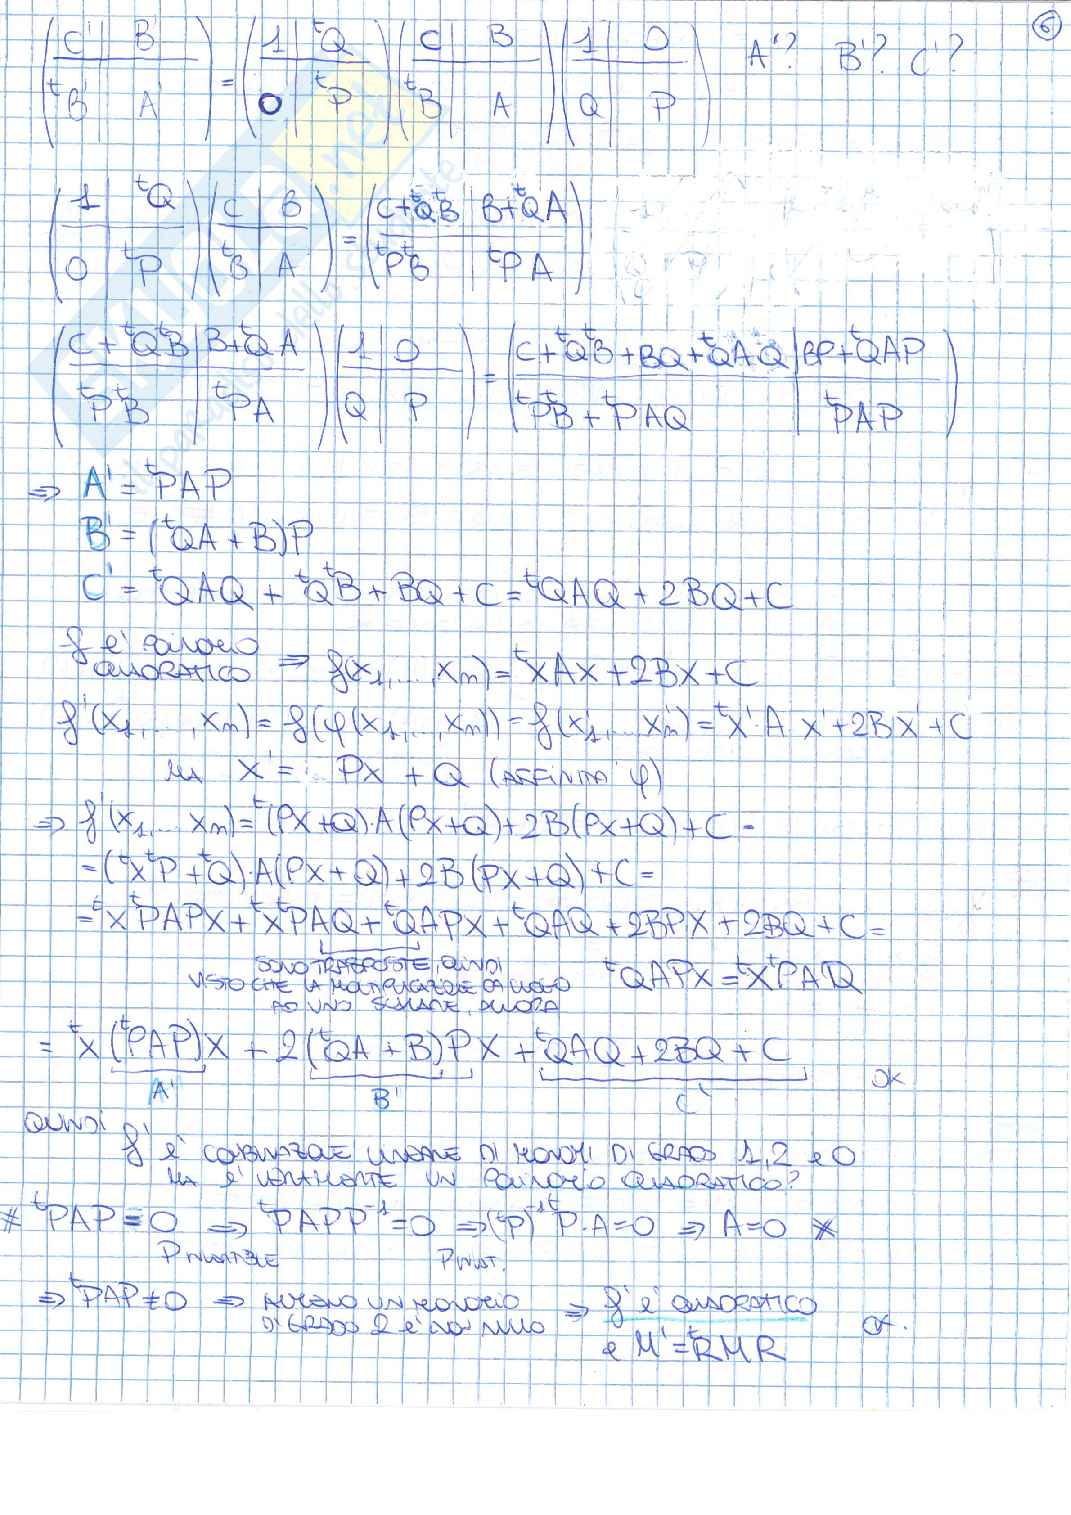 6
( C' | B' ; ᵗB' | A' ) = ( 1 | ᵗQ ; 0 | ᵗP ) ( C | B ; ᵗB | A ) ( 1 | 0 ; Q | P ) A'? B'? C'?
( 1 | ᵗQ ; 0 | ᵗP ) ( C | B ; ᵗB | A ) = ( C+ᵗQᵗB | B+ᵗQA ; ᵗPᵗB | ᵗPA )
( C+ᵗQᵗB | B+ᵗQA ; ᵗPᵗB | ᵗPA ) ( 1 | 0 ; Q | P ) = ( C+ᵗQᵗB+BQ+ᵗQAQ | BP+ᵗQAP ; ᵗPᵗB+ᵗPAQ | ᵗPAP )
⇒ A' = ᵗPAP
B' = (ᵗQA + B)P
C' = ᵗQAQ + ᵗQᵗB + BQ + C = ᵗQAQ + 2BQ + C
f è polinomio
quadratico ⇒ f(x₁,...,xₙ) = ᵗXAX + 2BX + C
f'(x₁,...,xₙ) = f(φ(x₁,...,xₙ)) = f(x'₁,...,x'ₙ) = ᵗX'·A X' + 2BX' + C
MA X' = PX + Q (AFFINITÀ φ)
⇒ f'(x₁,...,xₙ) = ᵗ(PX+Q)·A(PX+Q) + 2B(PX+Q) + C =
= (ᵗXᵗP + ᵗQ)·A(PX+Q) + 2B(PX+Q) + C =
= ᵗXᵗPAPX + ᵗXᵗPAQ + ᵗQAPX + ᵗQAQ + 2BPX + 2BQ + C =
SONO TRASPOSTE, QUINDI
VISTO CHE LA MOLTIPLICAZIONE DÀ LUOGO
AD UNO SCALARE, ALLORA
ᵗQAPX = ᵗXᵗPAQ
= ᵗX(ᵗPAP)X + 2(ᵗQA + B)PX + ᵗQAQ + 2BQ + C
A' B' C' OK
QUINDI
f' È COMBINAZIONE LINEARE DI MONOMI DI GRADO 1, 2 e 0
MA È VERAMENTE UN POLINOMIO QUADRATICO?
* ᵗPAP = 0 ⇒ ᵗPAPP⁻¹ = 0 ⇒ (ᵗP)⁻¹ᵗP·A = 0 ⇒ A = 0 *
P INVERTIBILE P INVERT.
⇒ ᵗPAP ≠ 0 ⇒ ALMENO UN MONOMIO
DI GRADO 2 È NON NULLO ⇒ f' è QUADRATICO
e M' = ᵗRMR OK.